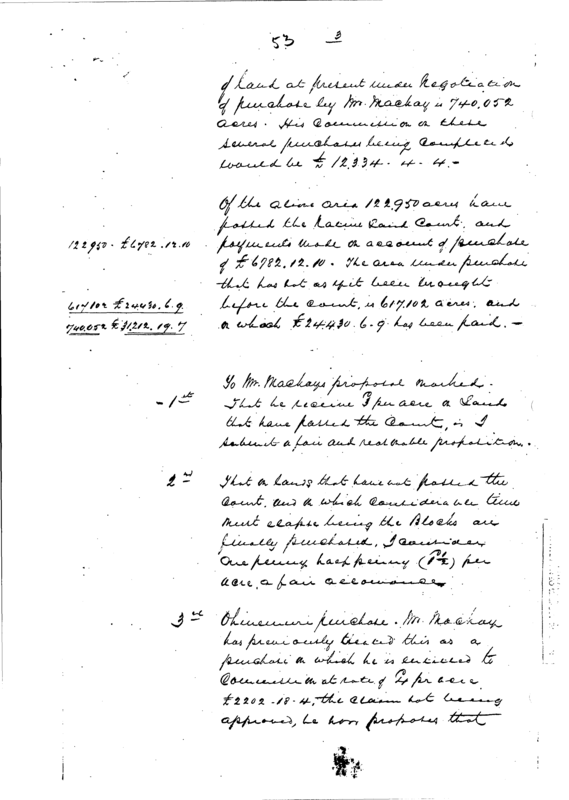 53 3
of Land at present under Negotiation
of purchase by Mr. Mackay is 740,052
acres. His Commission on these
several purchases being completed
would be £12,334. 4. 4. -
Of the above area 122,950 acres have
passed the Native Land Court, and
122,950 - £6782.12.10
payments made on account of purchase
of £6782.12.10. The area under purchase
that has not as yet been brought
617,102 £24,430.6.9
before the Court, is 617,102 acres, and
740,052 £31,212.19.7
on which £24,430.6.9 has been paid. -
To Mr. Mackays proposal marked.
- 1st
That he receive per acre on Lands
that have passed the Court, is I
submit a fair and reasonable proposition.
2nd
That on lands that have not passed the
Court, and on which considerable time
must elapse being the Blocks are
finally purchased, I consider
one penny half penny (1½) per
acre, a fair allowance
3rd
Ohinemuri purchase. Mr. Mackay
has previously treated this as a
purchase on which he is entitled to
Commission at rate of per acre
£2202.18.4, the claim not being
approved, he now proposes that